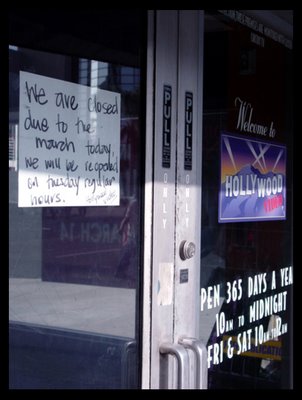 We are closed
due to the
march today,
we will be reopened
on tuesday regular
hours.
PULL
ONLY
PULL
ONLY
Welcome to
HOLLYWOOD
VIDEO
PEN 365 DAYS A YEA
10AM TO MIDNIGHT
FRI & SAT 10AM TO
MARCH 14